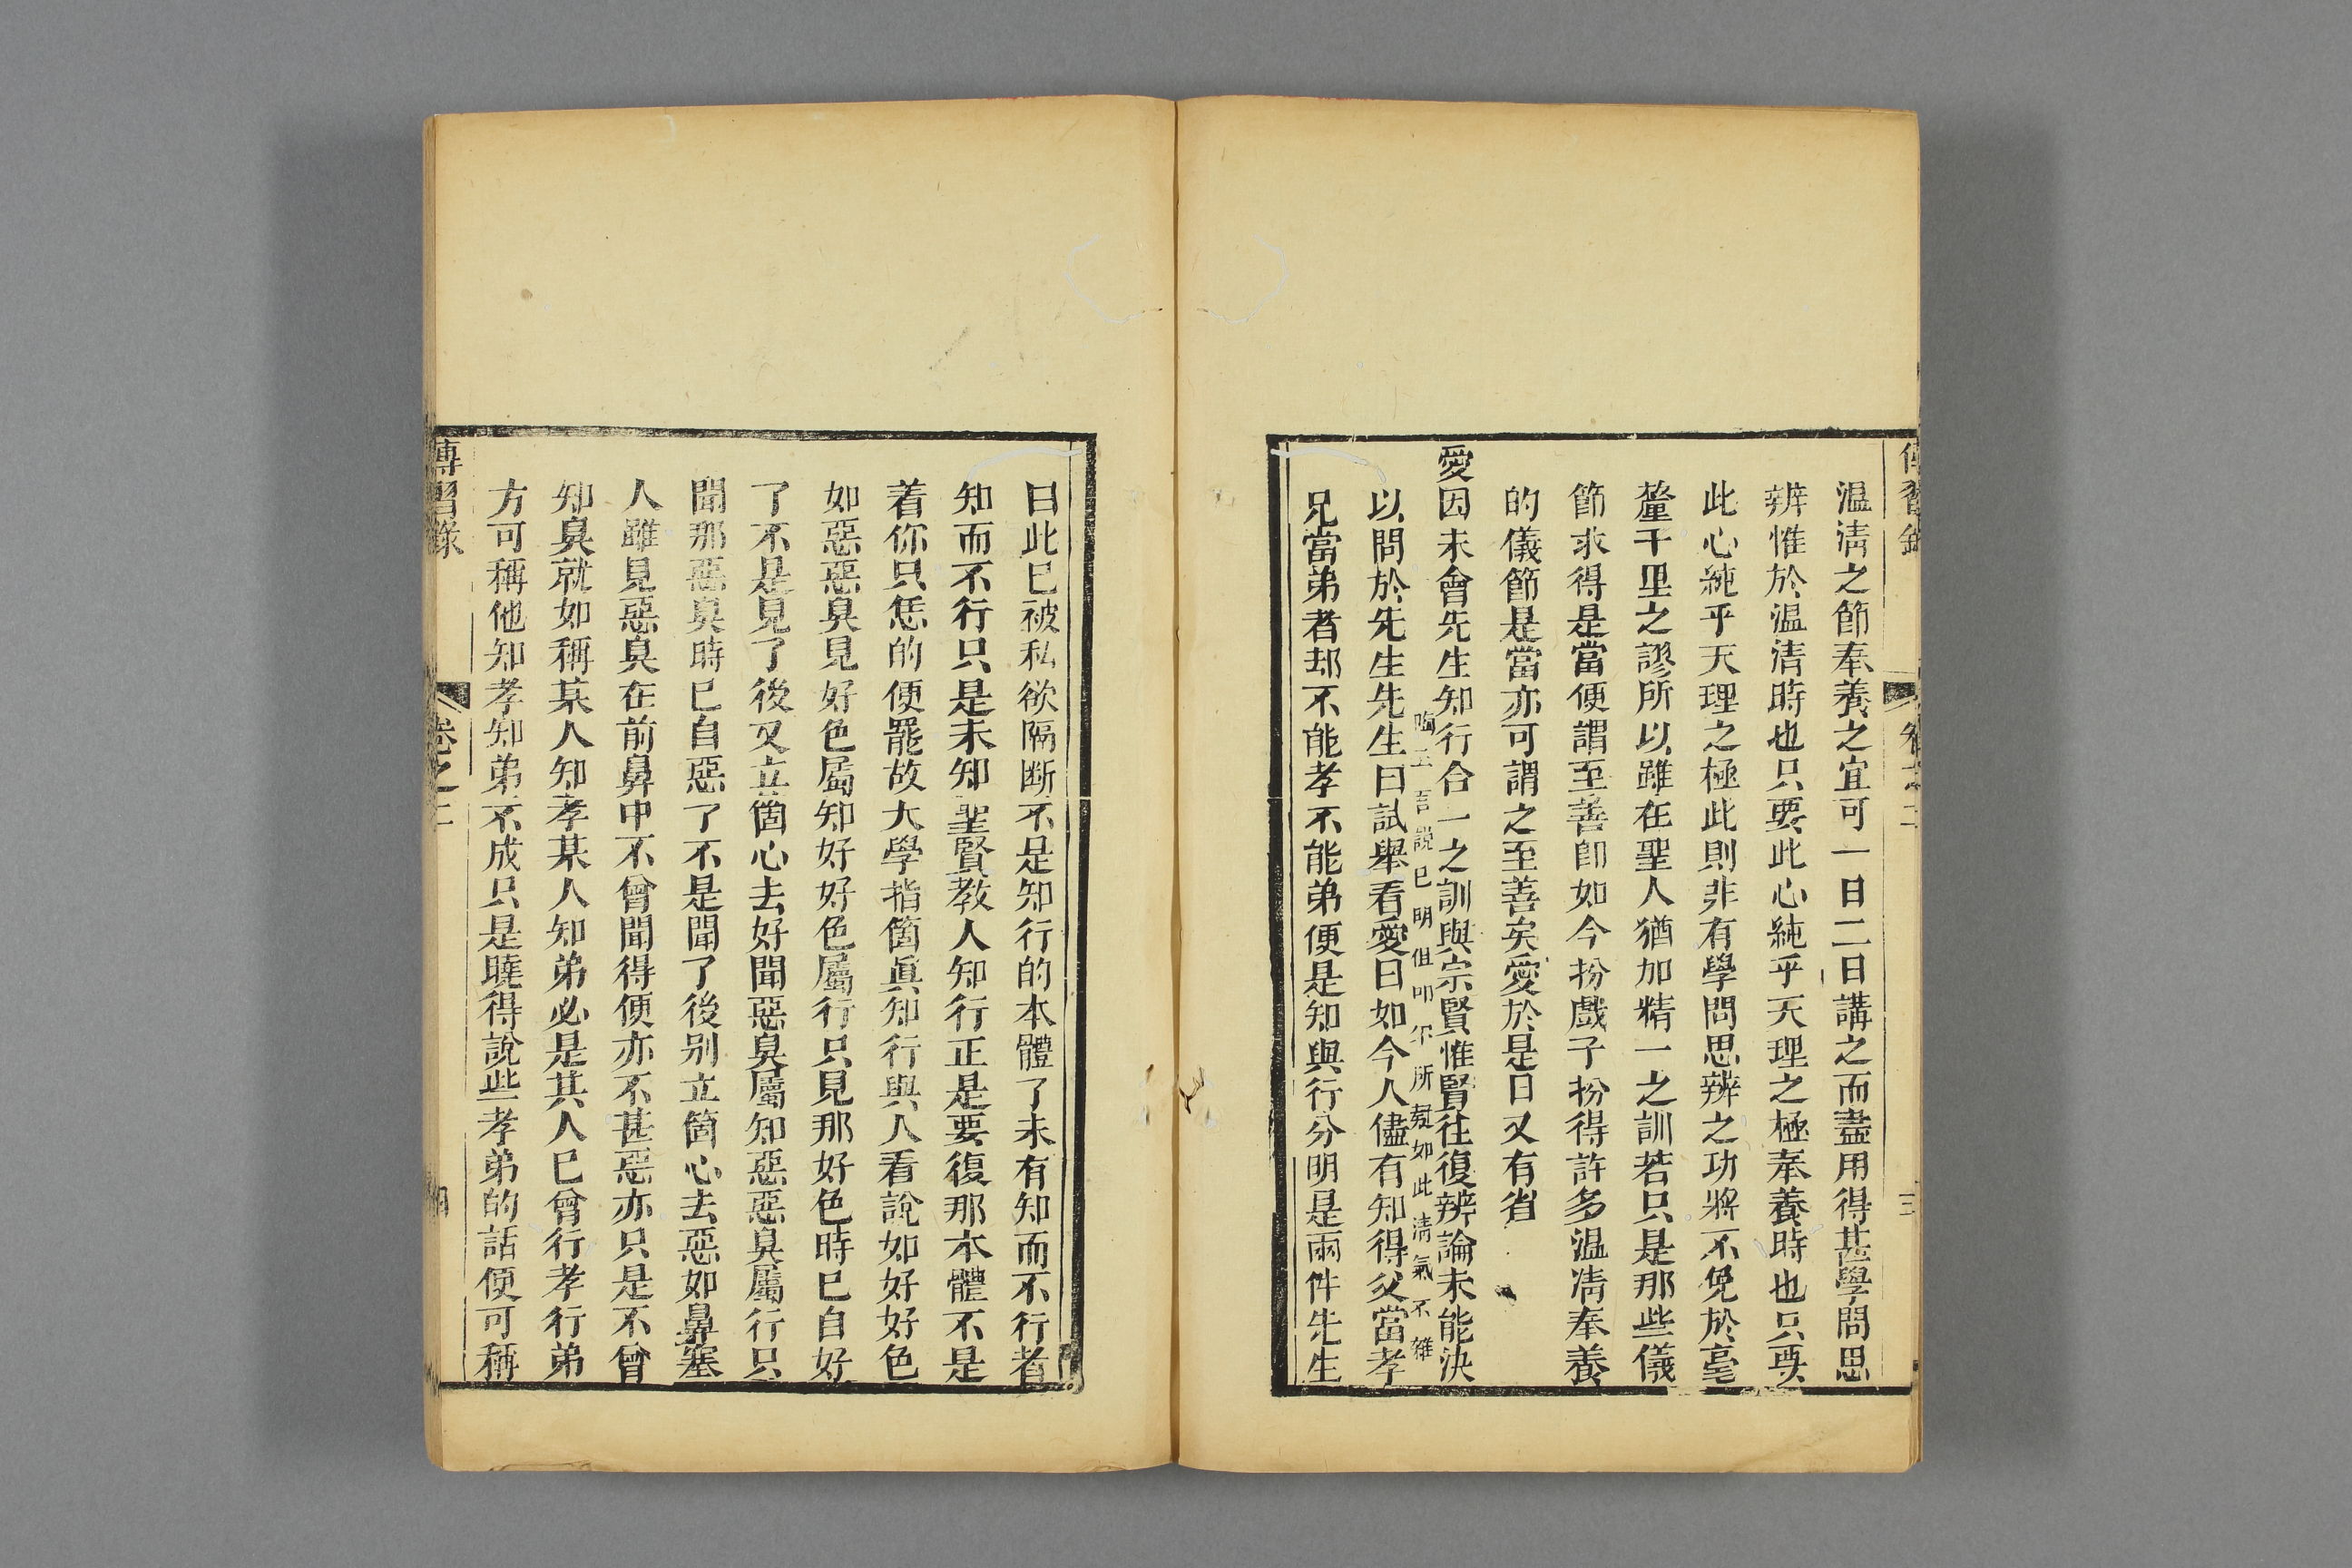 傳習錄 卷之二 三
温凊之節奉養之宜可一日二日講之而盡用得甚學問思
辨惟於温凊時也只要此心純乎天理之極奉養時也只要
此心純乎天理之極此則非有學問思辨之功將不免於毫
釐千里之謬所以雖在聖人猶加精一之訓若只是那些儀
節求得是當便謂至善卽如今扮戲子扮得許多温凊奉養
的儀節是當亦可謂之至善矣愛於是日又有省
愛因未會先生知行合一之訓與宗賢惟賢往復辨論未能決
言說已明但叩 所 如此淸氣不雜
以問於先生先生曰試舉看愛曰如今人儘有知得父當孝
兄當弟者却不能孝不能弟便是知與行分明是兩件先生
曰此已被私欲隔断不是知行的本體了未有知而不行者
知而不行只是未知聖賢教人知行正是要復那本體不是
着你只恁的便罷故大學指箇眞知行與人看說如好好色
如惡惡臭見好色屬知好好色屬行只見那好色時已自好
了不是見了後又立箇心去好聞惡臭屬知惡惡臭屬行只
聞那惡臭時已自惡了不是聞了後别立箇心去惡如鼻塞
人雖見惡臭在前鼻中不曾聞得便亦不甚惡亦只是不曾
知臭就如稱某人知孝某人知弟必是其人已曾行孝行弟
方可稱他知孝知弟不成只是曉得說些孝弟的話便可稱
傳習錄 卷之二 四